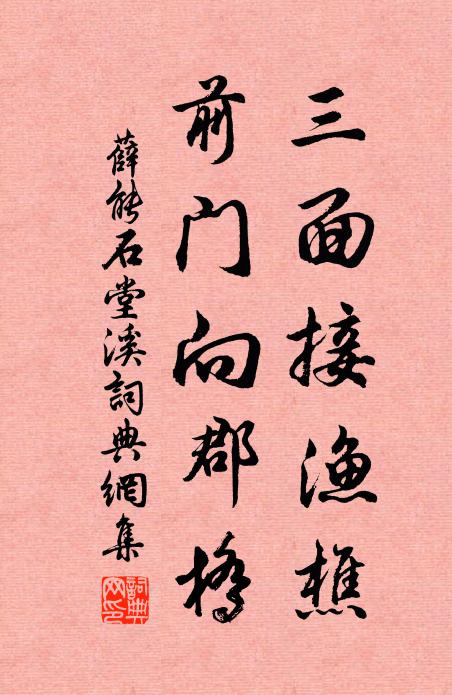 三面接漁樵
前門向郡橋
薛能石堂溪詞典網集
詞典網印